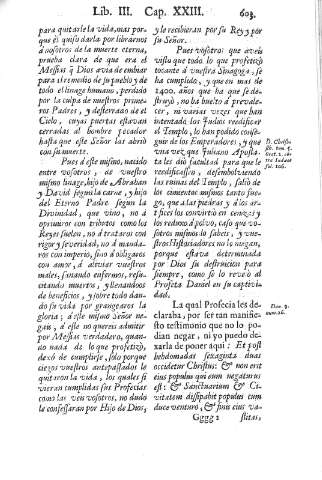 Lib. III. Cap. XXIII. 603.
para quitarle la vida, mas por-
que èl quiso darla por librarnos
à nosotros de la muerte eterna,
prueba clara de que era el
Messias q̃ Dios avia de embiar
para el remedio de su pueblo y de
todo el linage humano, perdido
por la culpa de nuestros prime-
ros Padres, y desterrado de el
Cielo, cuyas puertas estavan
cerradas al hombre pecador
hasta que este Señor las abriò
con su muerte.
Pues à este mismo, nacido
entre vosotros, de vuestro
mismo linage, hijo de Abrahan
y David segun la carne, y hijo
del Eterno Padre segun la
Divinidad, que vino, no à
oprimiros con tributos como los
Reyes suelen, no à trataros con
rigor y severidad, no à manda-
ros con imperio, sino à obligaros
con amor, à aliviar vuestros
males, sanando enfermos, resu-
citando muertos, y llenandoos
de beneficios, y sobre todo dan-
do su vida por grangearos la
gloria; à este mismo Señor ne-
gais, à este no quereis admitir
por Messias verdadero, quan-
do nada de lo que profetizò,
dexò de cumplirse, solo porque
ciegos vuestros antepassados le
quitaron la vida, los quales si
vieran cumplidas sus Profecias
como las veis vosotros, no dudo
le confessaran por Hijo de Dios,
y le recibieran por su Rey y por
su Señor.
Pues vosotros que aveis
visto que todo lo que profetizò
tocante à vuestra Sinagoga, se
ha cumplido, y que en mas de
1400. años que ha que se de-
struyò, no ha buelto à prevale-
cer, ni varias vezes que han
intentado los Judios reedificar
el Templo, lo han podido conse-
guir de los Emperadores, y que
una vez que Juliano Aposta-
ta les diò facultad para que le
reedificassen, desembolviendo
las ruinas del Templo, saliò de
los cimientos mismos tanto fue-
go, que à las piedras y à los ar-
tifices los convirtiò en ceniza, y
los reduxo à polvo, caso que vo-
sotros mismos lo sabeis, y vues-
tros Historiadores no lo negan,
porque estava determinada
por Dios su destruicion para
siempre, como se lo revelò al
Profeta Daniel en su captivi-
dad.
La qual Profecia les de-
claraba, por ser tan manifie-
sto testimonio que no lo po-
dian negar, ni yo puedo de-
xarla de poner aqui: Et post
hebdomadas sexaginta duas
occidetur Christus: & non erit
eius populus qui eum negaturus
est: & Sanctuarium & Ci-
vitatem dissipabit populus cum
duce venturo, & finis eius va-
Gggg 2 stitas,
D. Chrisos.
Dan. 9.
num. 26.